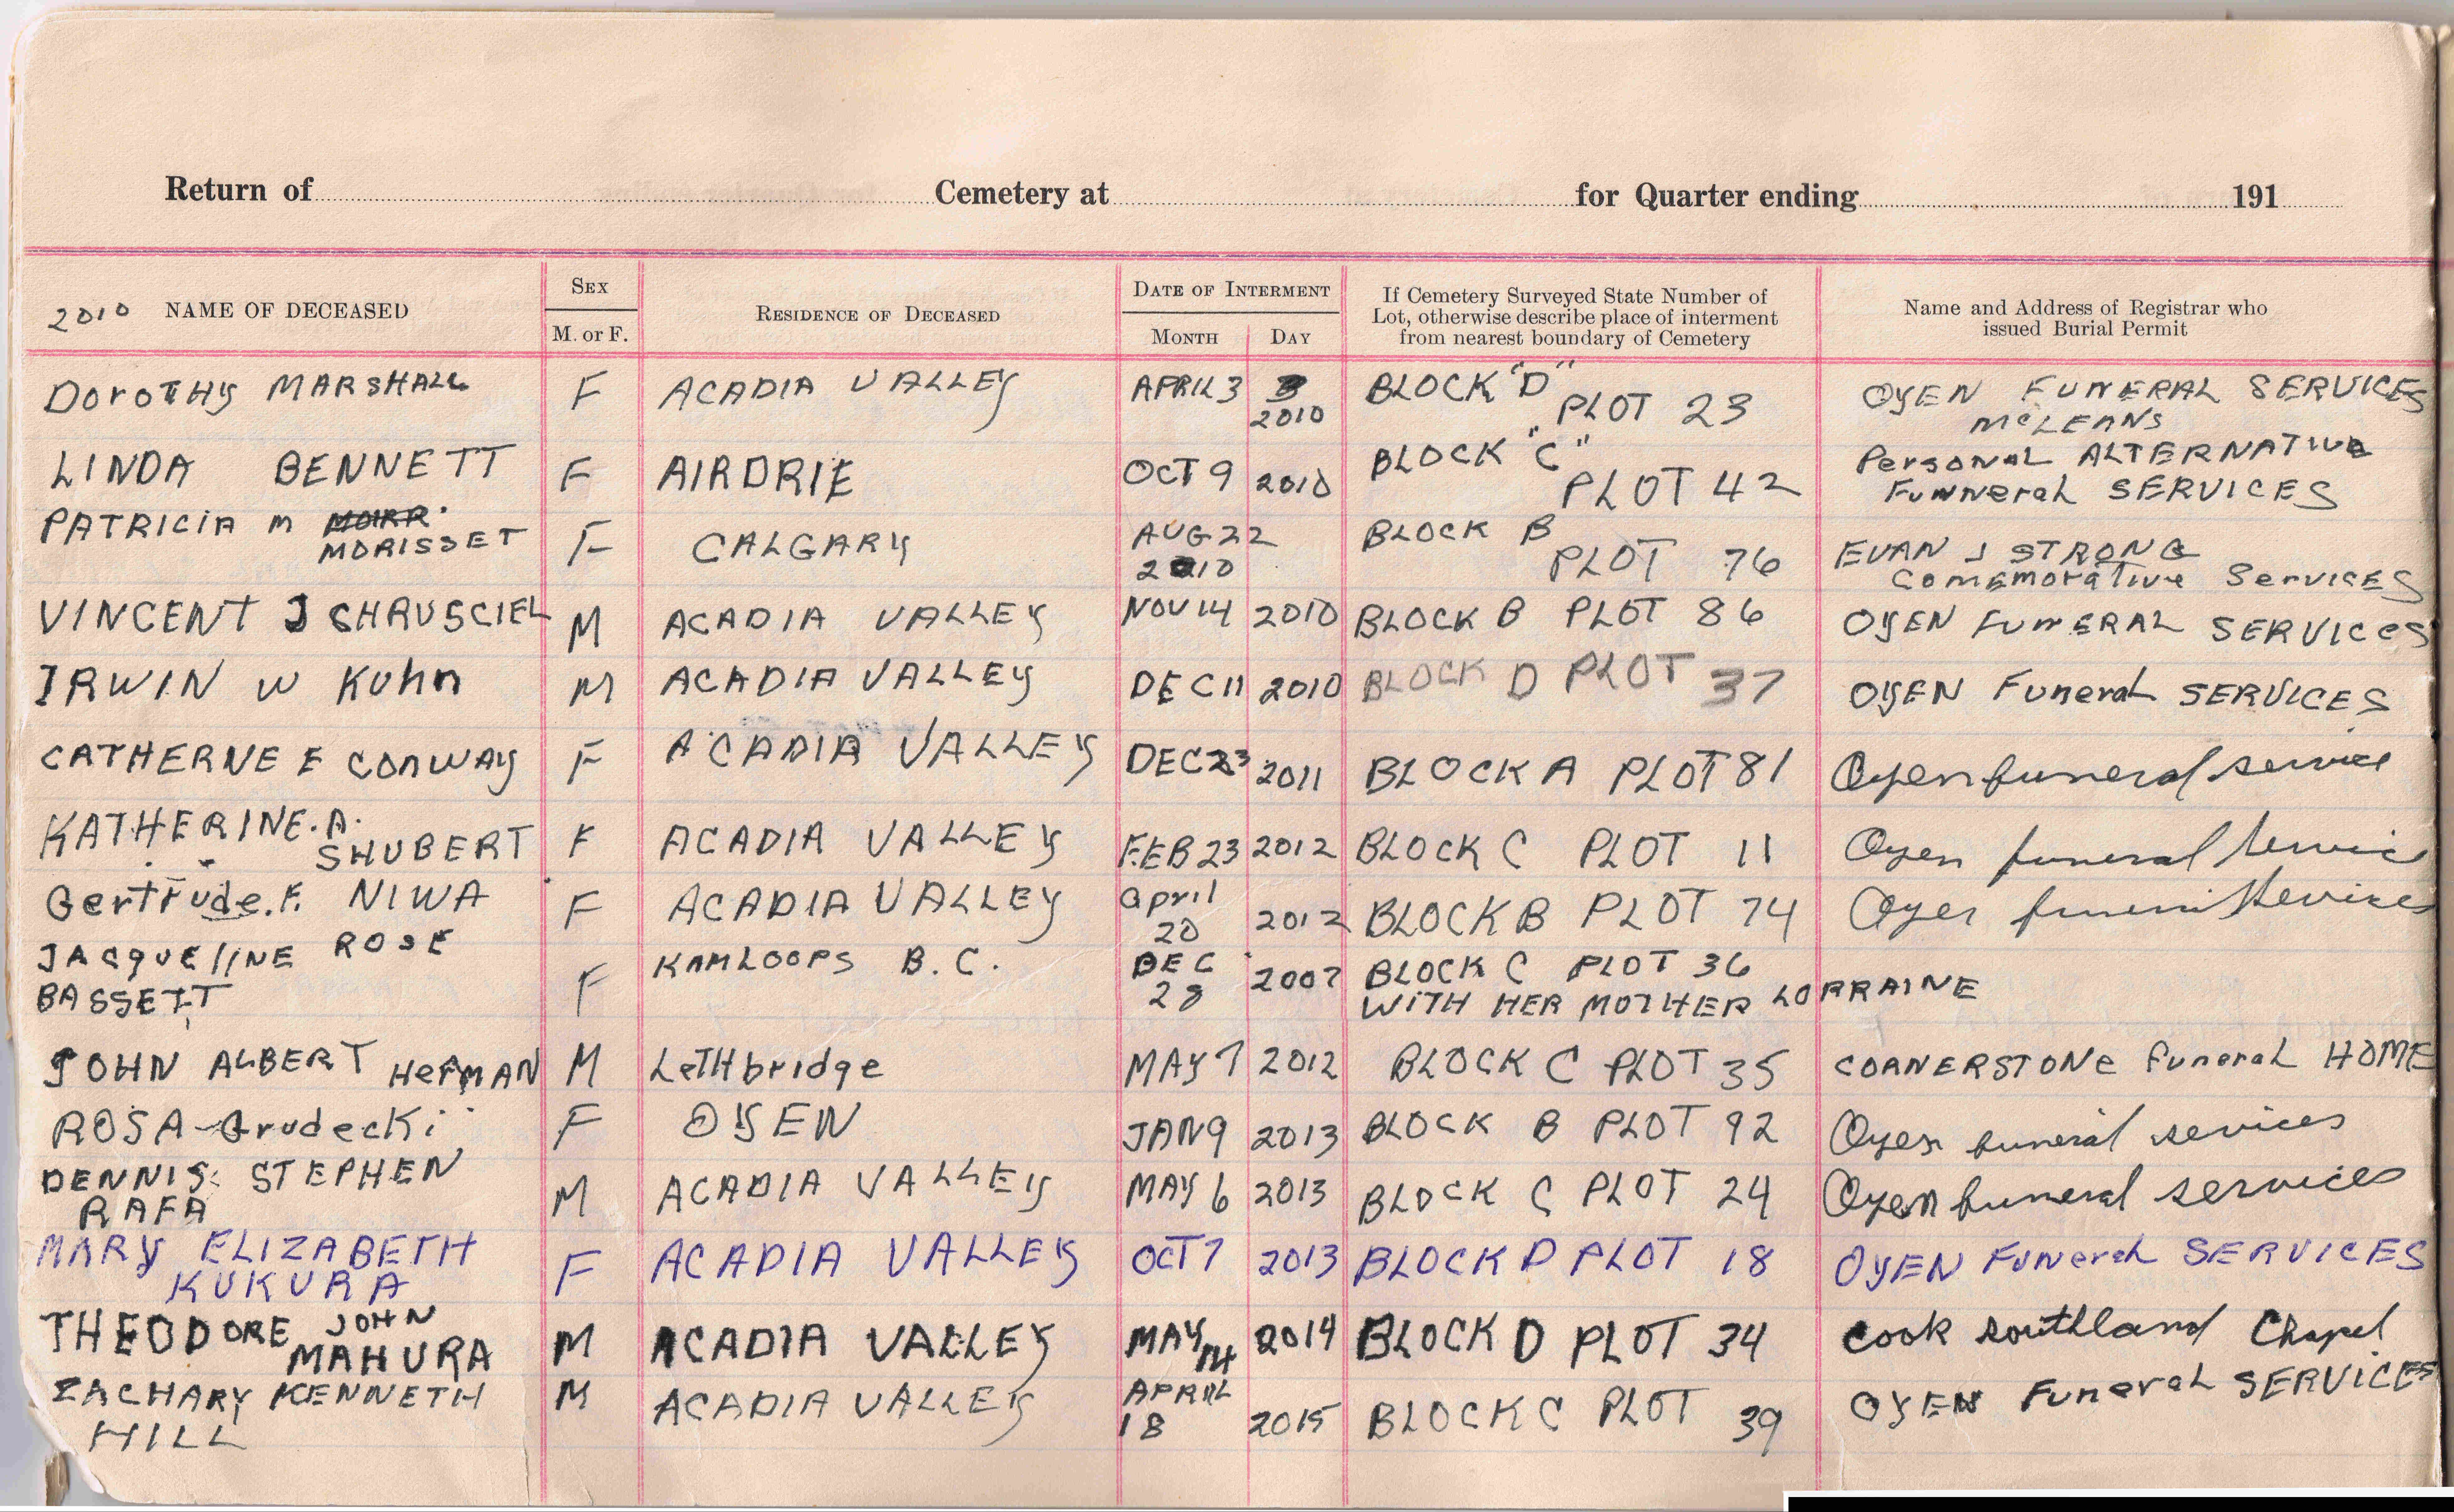 Return of Cemetery at for Quarter ending 191
2010 NAME OF DECEASED
SEX
M. or F.
RESIDENCE OF DECEASED
DATE OF INTERMENT
MONTH DAY
If Cemetery Surveyed State Number of
Lot, otherwise describe place of interment
from nearest boundary of Cemetery
Name and Address of Registrar who
issued Burial Permit
DOROTHY MARSHALL F ACADIA VALLEY APRIL 3 2010 BLOCK "D" PLOT 23 OYEN FUNERAL SERVICES
McLEANS
LINDA BENNETT F AIRDRIE OCT 9 2010 BLOCK "C" PLOT 42 Personal ALTERNATIVE
Funneral SERVICES
PATRICIA M MORR.
MORISSET F CALGARY AUG 22
2010 BLOCK B PLOT 76 EVAN J STRONG
Comemorative Services
VINCENT J CHRUSCIEL M ACADIA VALLEY NOV 14 2010 BLOCK B PLOT 86 OYEN FUNERAL SERVICES
IRWIN W Kuhn M ACADIA VALLEY DEC 11 2010 BLOCK D PLOT 37 OYEN Funeral SERVICES
CATHERNE E CONWAY F ACADIA VALLEY DEC 23 2011 BLOCK A PLOT 81 Oyen funeral service
KATHERINE. A.
SHUBERT F ACADIA VALLEY FEB 23 2012 BLOCK C PLOT 11 Oyen funeral Servic
Gertrude. F. NIWA F ACADIA VALLEY April
20 2012 BLOCK B PLOT 74 Oyen Services
JACQUELINE ROSE
BASSETT F KAMLOOPS B.C. DEC
28 2007 BLOCK C PLOT 36
WITH HER MOTHER LORRAINE
JOHN ALBERT HERMAN M LeTHbridge MAY 7 2012 BLOCK C PLOT 35 CORNERSTONE Funeral HOME
ROSA-Grudecki F OYEN JAN 9 2013 BLOCK B PLOT 92 Oyen funeral sevices
DENNIS STEPHEN
RAFA M ACADIA VALLEY MAY 6 2013 BLOCK C PLOT 24 Oyen funeral services
MARY ELIZABETH
KUKURA F ACADIA VALLEY OCT 7 2013 BLOCK D PLOT 18 OYEN Funeral SERVICES
THEODORE JOHN
MAHURA M ACADIA VALLEY MAY 14 2014 BLOCK D PLOT 34 Cook Southland Chapel
ZACHARY KENNETH
HILL M ACADIA VALLEY APRIL
18 2015 BLOCK C PLOT 39 OYEN Funeral SERVICES